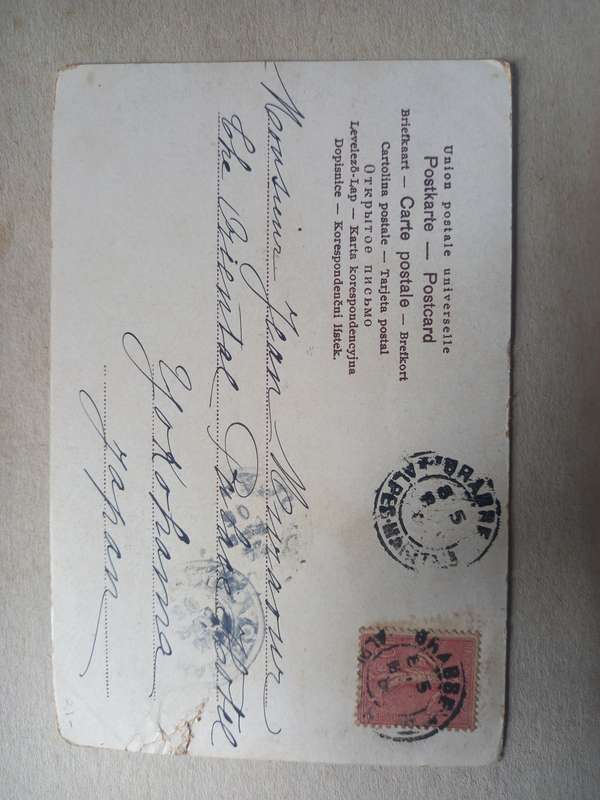 Union postale universelle
Postkarte — Postcard
Briefkaart — Carte postale — Brefkort
Cartolina postale — Tarjeta postal
Открытое письмо
Levelező-Lap — Karta korespondencyjna
Dopisnice — Korespondenční lístek.
GRASSE
ALPES-MARITIMES
GRASSE
Monsieur Jean
The Oriental Palace Hotel
Yokohama
Japan